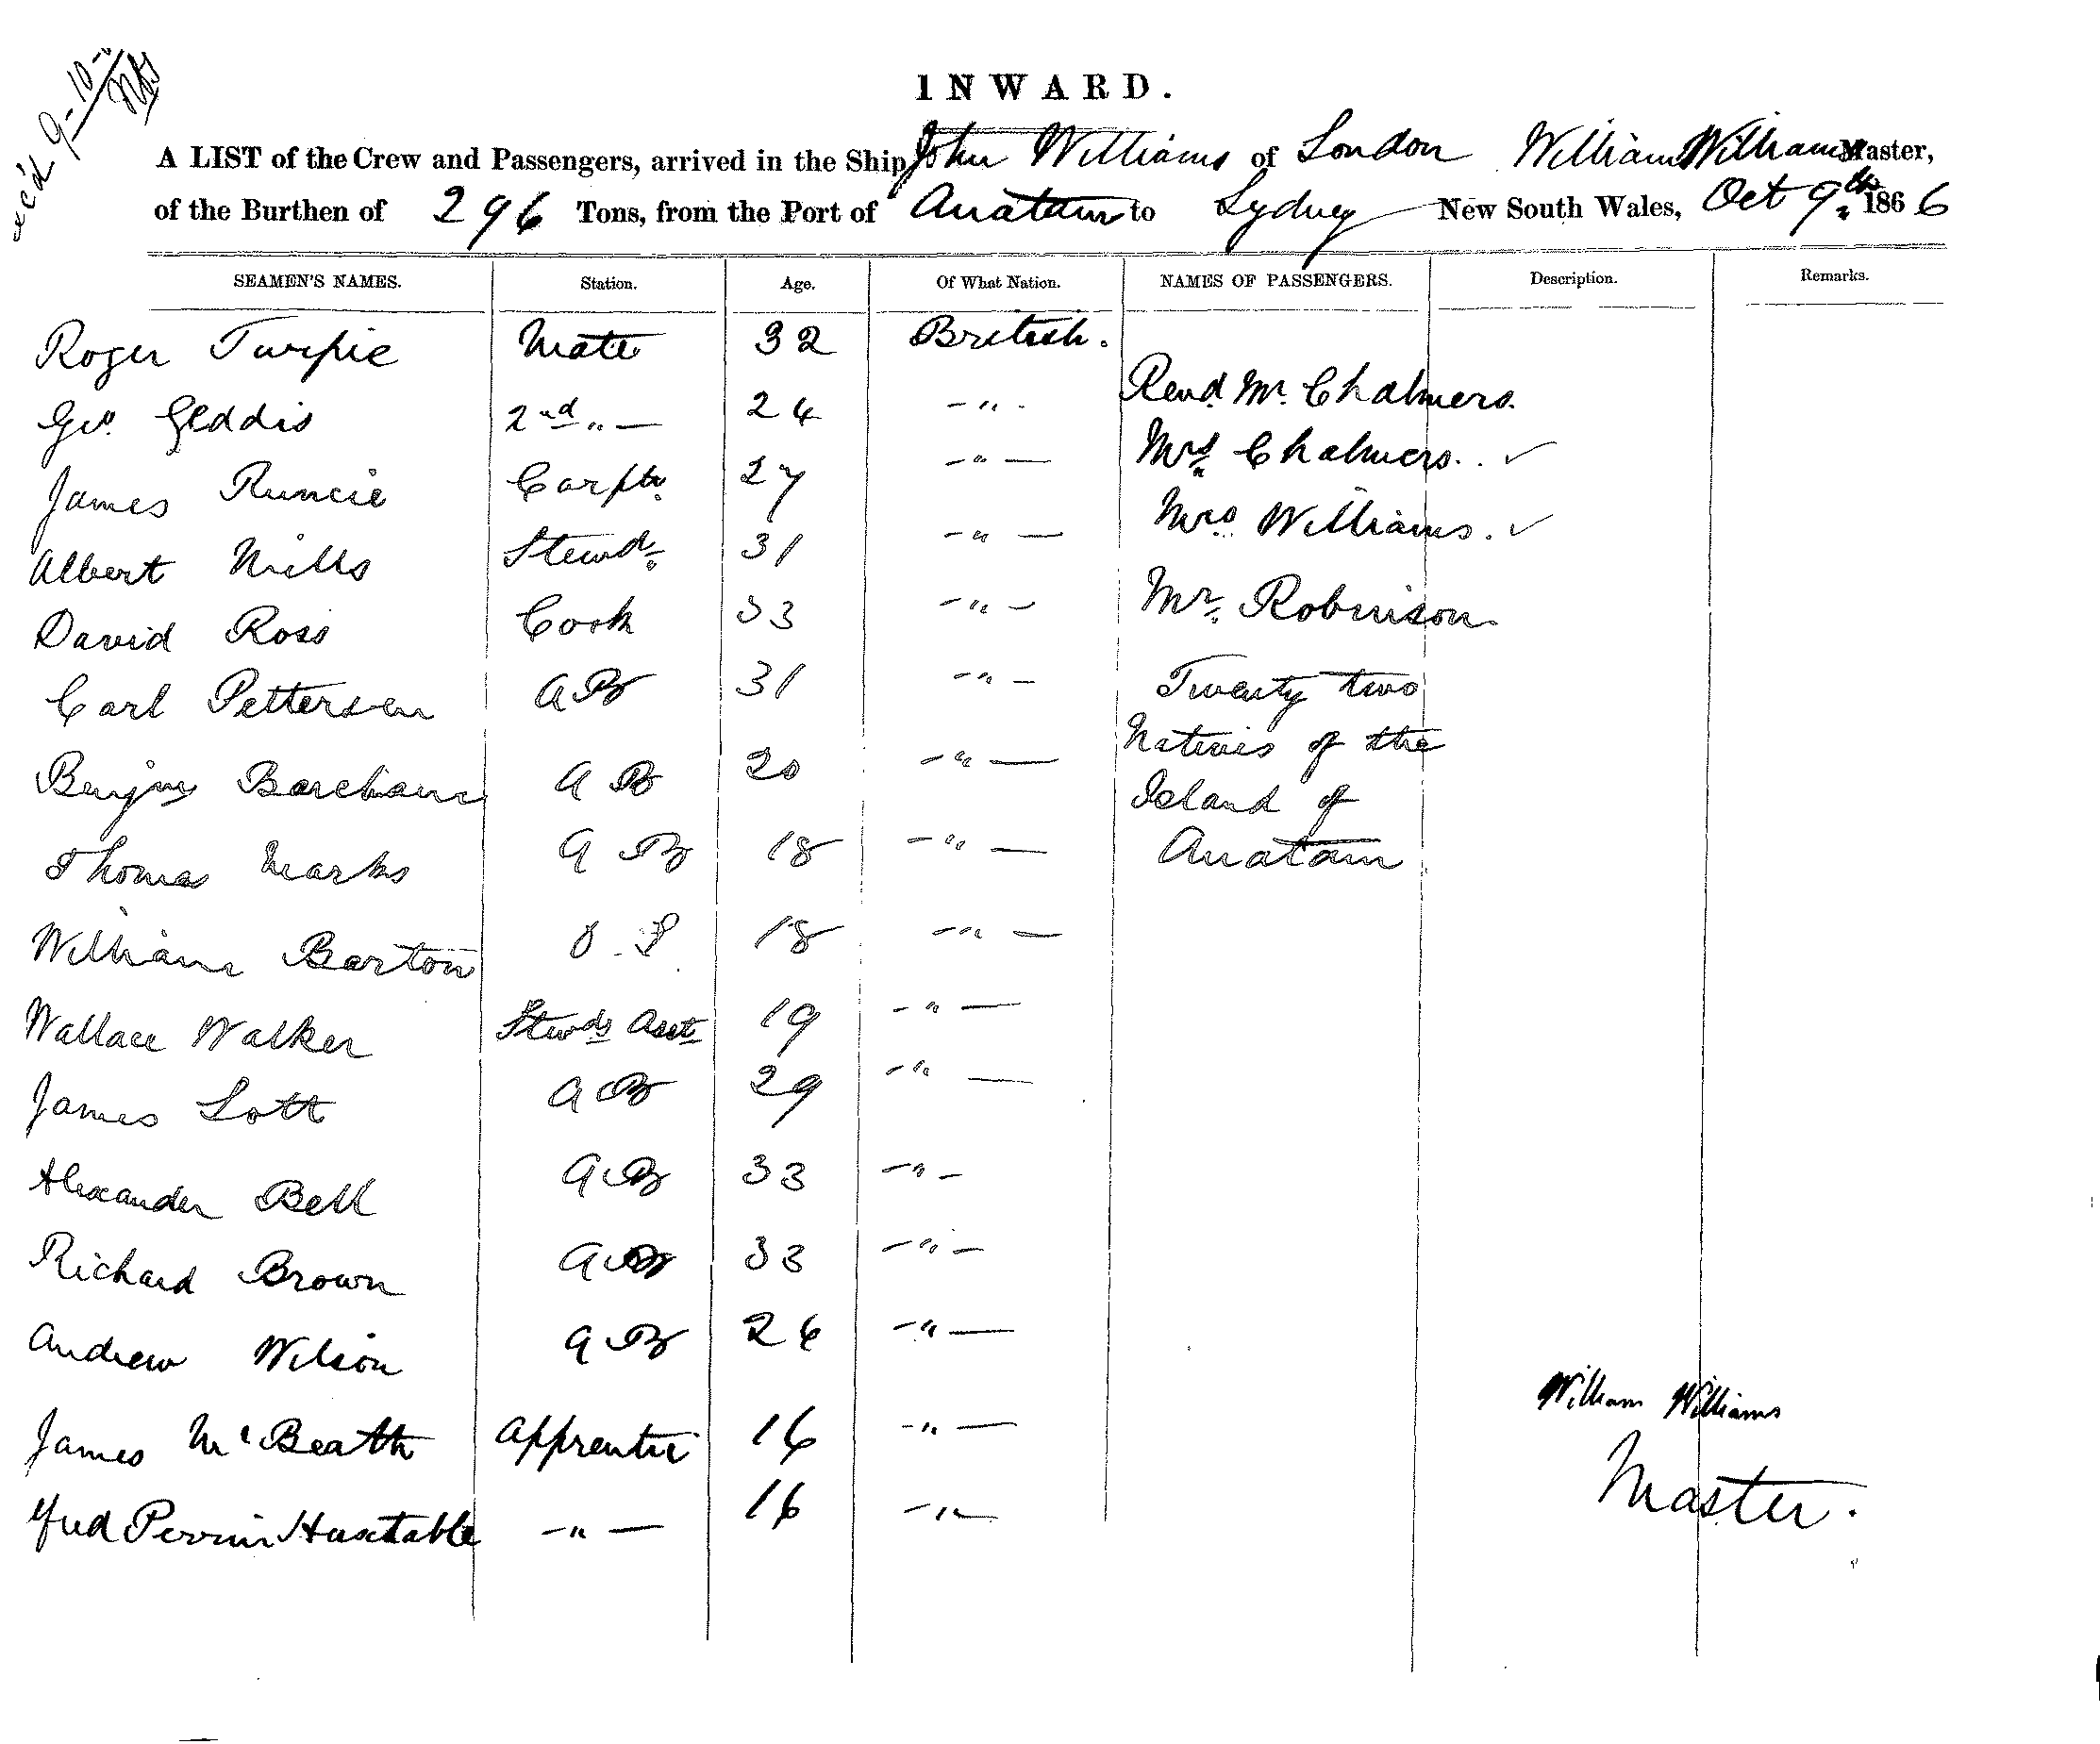 rec'd 9-10-
INWARD.
A LIST of the Crew and Passengers, arrived in the Ship John Williams of London William Williams Master,
of the Burthen of 296 Tons, from the Port of Anatam to Sydney New South Wales, Oct 9th 1866
SEAMEN'S NAMES. Station. Age. Of What Nation. NAMES OF PASSENGERS. Description. Remarks.
Roger Turpie Mate 32 British.
Geo. Geddis 2nd " — 24 - " - Revd. Mr. Chalmers.
James Runcie Carptr. 27 - " — Mrs Chalmers. . ✓
Albert Mills Stewd. 31 - " — Mrs Williams. ✓
David Ross Cook 33 - " - Mr. Robinson.
Carl Petterson AB 31 - " - Twenty two
Natives of the
Benjm Barcham AB 20 - " — Island of
Thomas Marks AB 18 - " — Anatam
William Barton O.S. 18 - " —
Wallace Walker Stewds Asst 19 - " —
James Lott AB 29 - " —
Alexander Bell AB 33 - " -
Richard Brown AB 33 - " -
Andrew Wilson AB 26 - " —
William Williams
James McBeath Apprentic 16 - " —
Master.
Fred Perrin Huxtable - " — 16 - " —